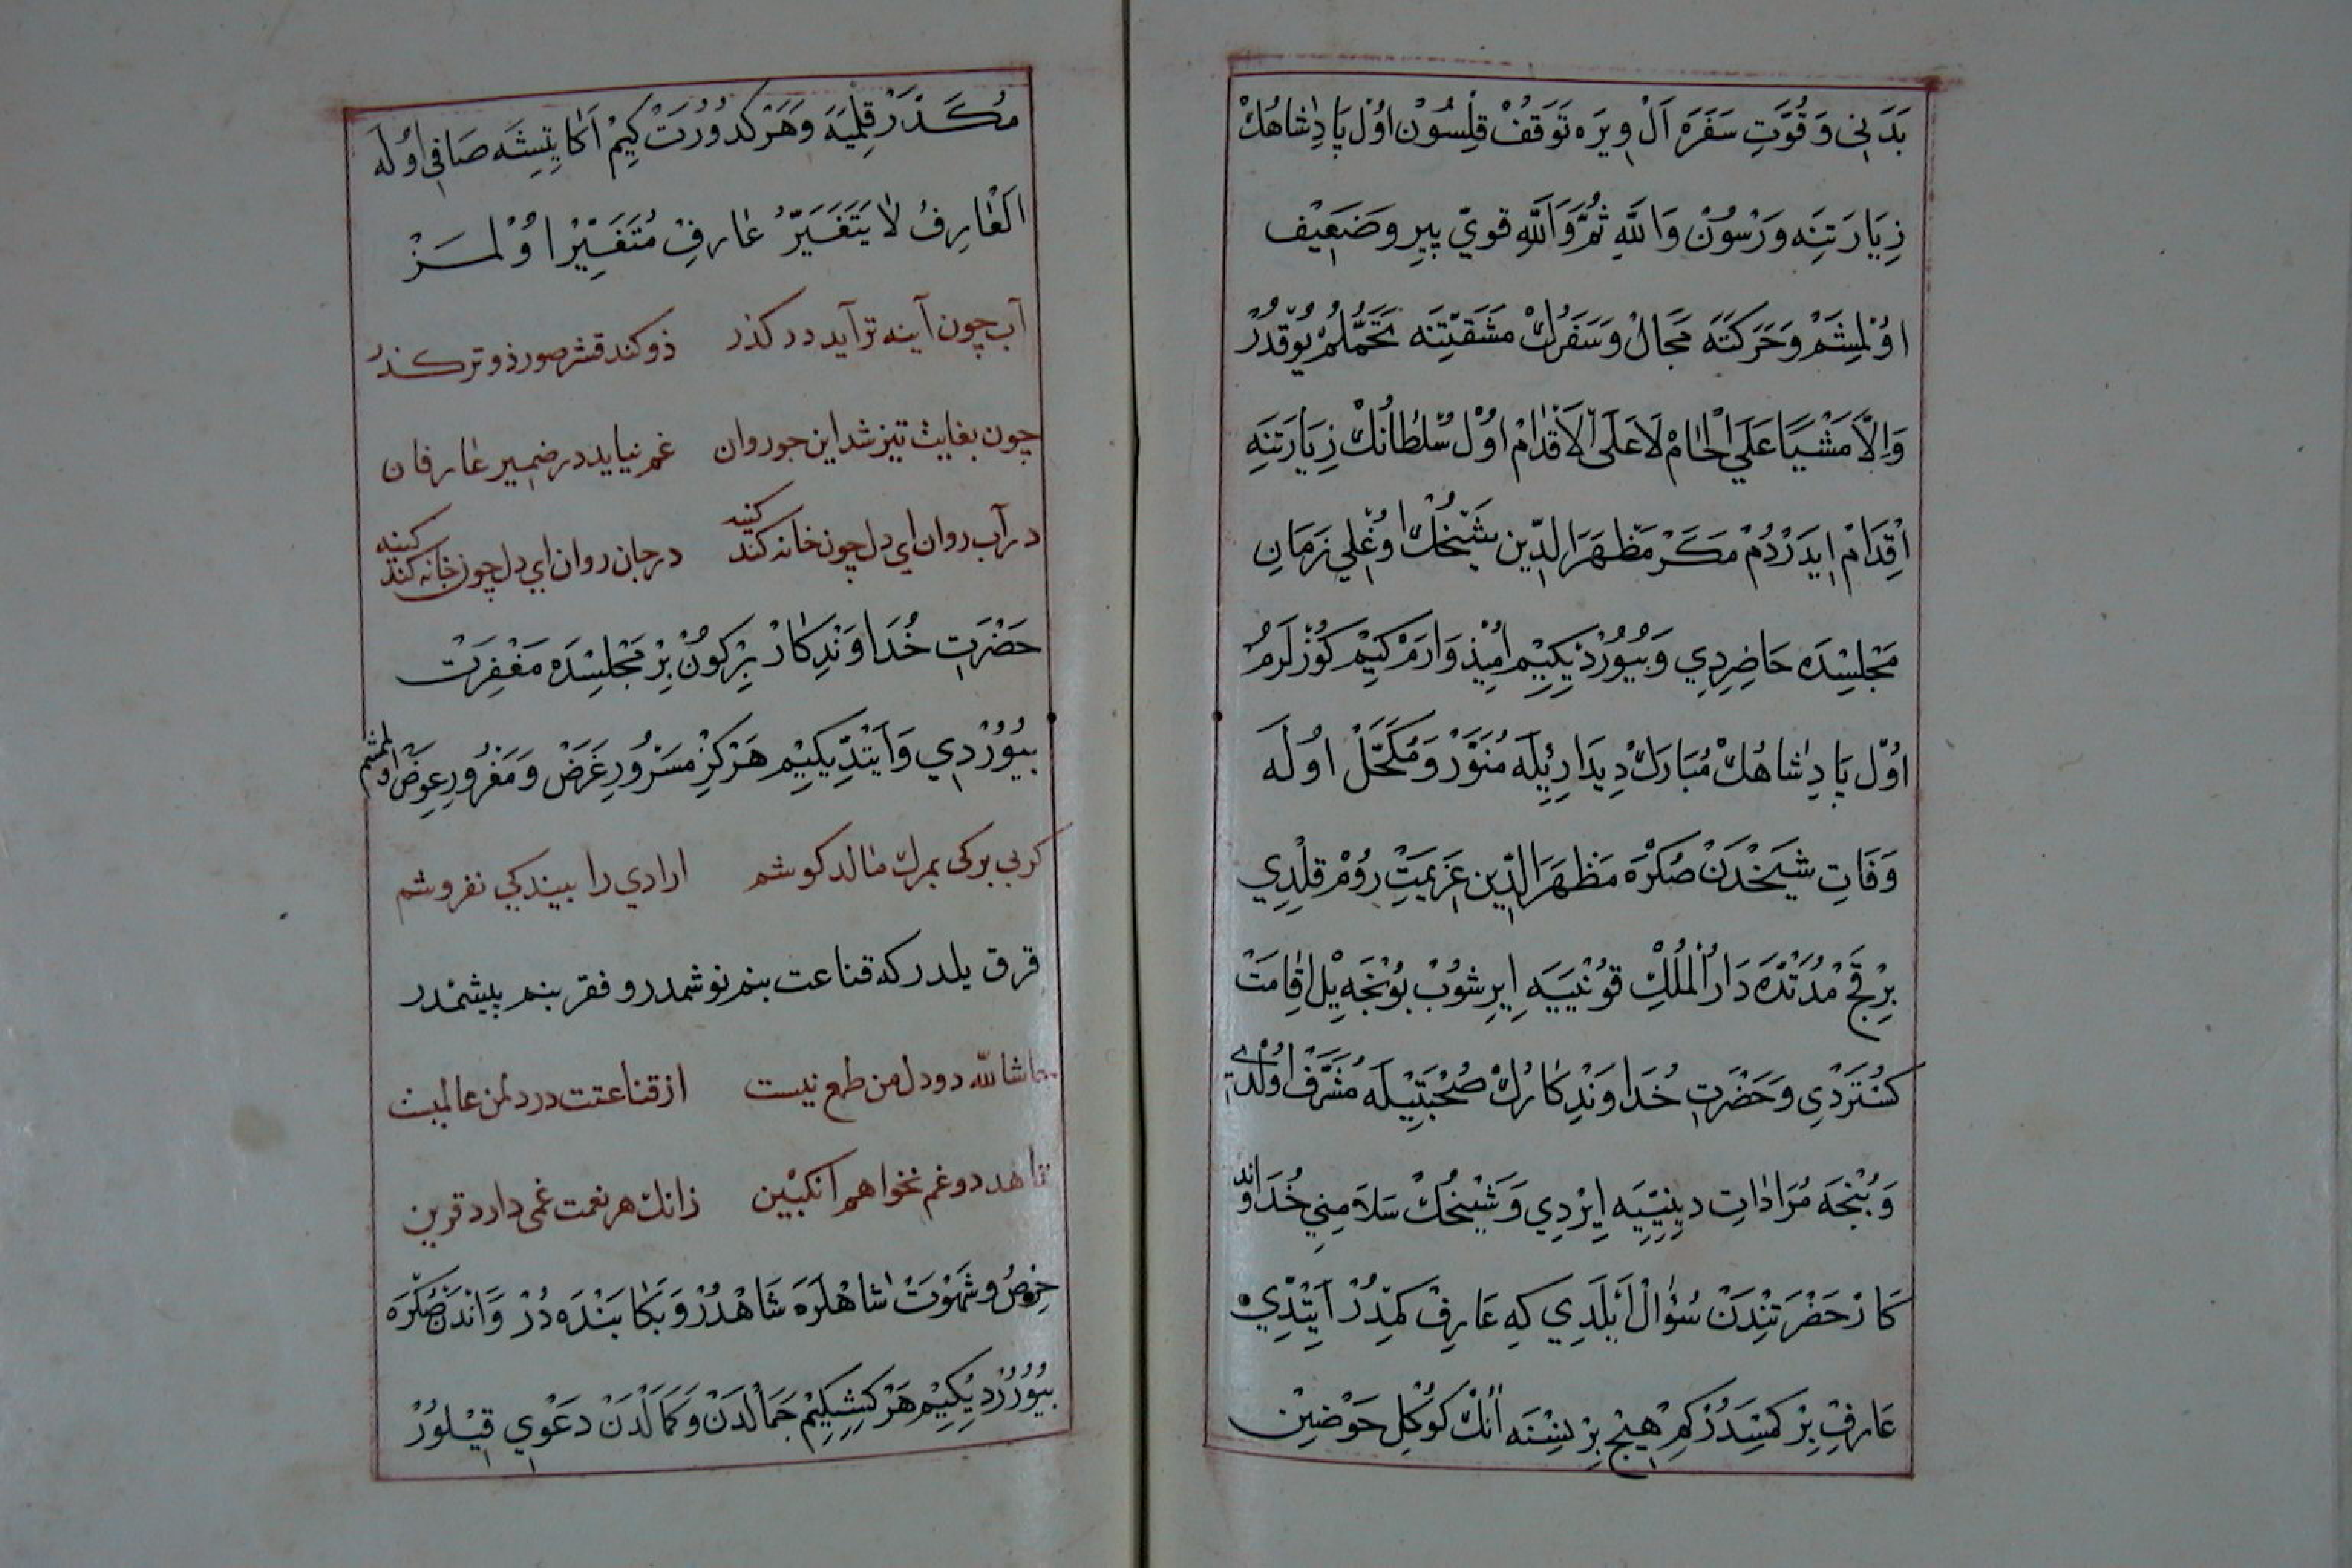 بَدَنِي وَ قُوَّتِ سَفَرَه اَلْ وِيرَه تَوَقُفْ قِلِسُونْ اوُلْ پَادِشَاهُكْ
زِيَارَتِنَه وَرْسُونْ وَاللّٰهِ ثُمَّ وَاللّٰهِ قوِيّ پِيرِ وضَعِيْف
اوُلْمِشَمْ وَحَرَكَتَه مَجَالْ وَسَفَرُكْ مَشَقَّتِنَه تَحَمُّلُمْ يُوقْدُرْ
وَاِلاَّ مَشْيًا عَلَي الْهَامْ لَا عَلَى الْاَقْدَامْ اوُلْ سُلْطَانُكْ زِيَارَتِنَه
اِقْدَامْ ايدَرْدُمْ مَكَرْ مَظْهَرَ الدِّينِ شَيْخُكْ اوُغْلِي زَمَانِ
مَجْلِسِدَه حَاضِردِي وَبُيُورْدِيكِيِمْ اُمِيذِ وَارَمْ كِيمْ كَوُزْلَرُمْ
اوُلْ پَادِشَاهُكْ مُبَارَكْ دِيدَارِيلَه مُنَوَّرْ وَمُكَحَّلْ اوُلَه
وَفَاتِ شَيْخْدَنْ صُكْرَه مَظْهَرَ الدِّينِ عَزِيمَتِ رُومْ قِلْدِي
بِرْ قَچْ مُدَّتْدَه دَارُ الْمُلْكِ قوُنْيَيَه اِيرِشُوبْ بُونْجَه يِلْ اِقَامَتْ
كُسْتَرْدِي وَحَضْرَتِ خُدَاوَنْدِكَارُكْ صُحْبَتِيلَه مُشَرَّفْ اوُلْدِي
وَ بُنْجَه مُرَادَاتِ دِينِيَّيَه اِيرْدِي وَشَيْخُكْ سَلَامِنِي خُدَاوَنْد
كَارْ حَضْرَتِنْدَنْ سُؤَالْ اَيْلَدِي كِه عَارِفْ كِمْدُرْ اَيْتِدِي
عَارِفْ بِرْ كِمْسَدُرْ كِمْ هِيچْ بِرْ نِسْنَه اَنُكْ كَوُكُلِ حَوْضِيِنْ
مُكَدَّرْ قِلْمِيَه وَهَرْ كدُورَتْ كِيِمْ اَكَا يِتِشَه صَافِي اوُلَه
اَلْعَارِفُ لَا يَتَغَيَّرُ عَارِفْ مُتَغَيِّرْ اوُلْمَزْ
آب چون آينه تر آيد در كذر ذو كند قشر صور ذوتر كذر
چون بغايت تيز شد اين جو روان غم نيايد در ضمير عارفان
در آب روان اي دل چون خانه كند كنيد در جان روان اي دل چون خانه كند كينه
حَضْرَتِ خُدَاوَنْدِكَارْ بِرْكُونْ بِرْ مَجْلِسِدَه مَعْفِرَتْ
بُيُورْدِي وَاَيْتْدِيكِيِمْ هَرْكِزْ مَسْرُورِ غَرَضْ وَ مَغْرُورِ عِوَضْ اولمشم
كر بي بركى بمرك مالد كوشم ازادي را ببيندكي نفروشم
قرق يلدر كه قناعت بنم نوشمدر و فقر بنم پيشمدر
حاشا لله دو دل من طمع نيست از قناعت در دلمن عالميست
تا هد دوغم نخواهم انكبين زانك هر نعمت غمى دارد قرين
حِرْصُ و شَهْوَتْ شَاهْلَرَه شَاهْدُرْ وَبَكَا بَنْدَه دُرْ وَ اَنْدَنْ صُكْرَه
بُيُورْدِيكِيِمْ هَرْ كِشِيكِيِمْ جَمَالْدَنْ وَكَمَالْدَنْ دَعْوِي قِيلُورْ